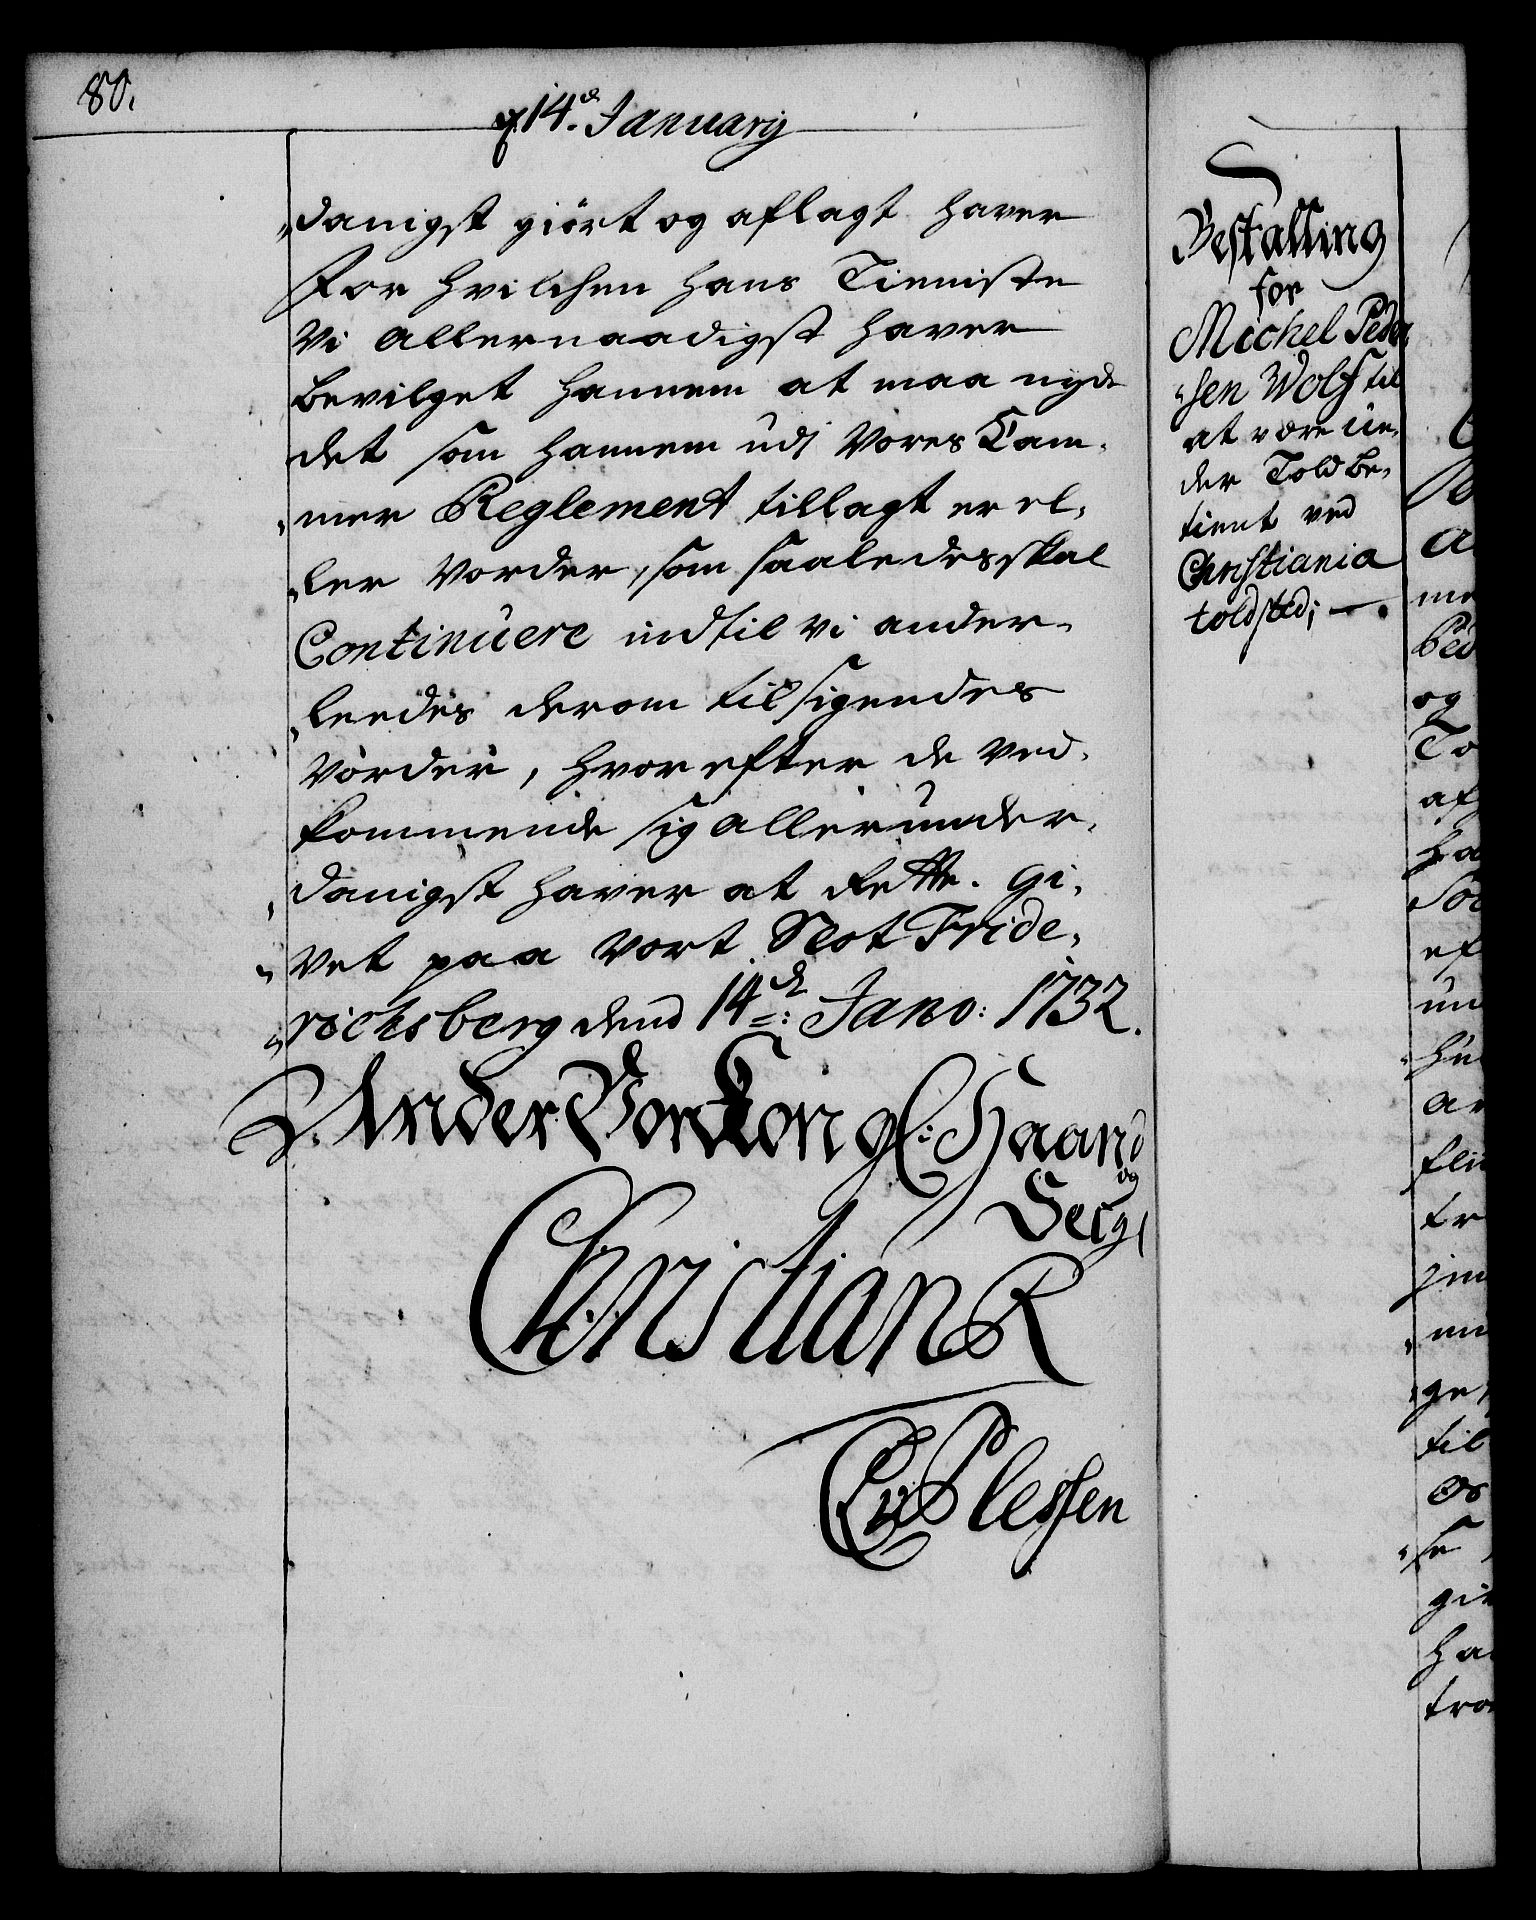 80.
d. 14.de January
„danigst giört og aflagt haver
for hvilchen hans Tieniste
Vi allernaadigst haver
bevilget hannem at maa nyde
det som hannem udj Vores Cam„
„mer Reglement tillagt er el„
„ler vorder, som saaledes skal
Continuere indtil vi ander„
„leedes derom tilsigendes
vorder, hvorefter de ved„
kommende sig allerunder„
„danigst haver at rette. Gi„
„vet paa vort Slot Fride„
„richsberg dend 14de: Janv: 1732.
Under Vor Kongl: Haand
og
Seigl
Christian R
CAvPlessen
Bestalling
for
Michel Peder„
„sen Wolf til
at være un„
der Toldbe„
tient ved
Christiania
toldsted;
me
Ped
og
To
af
ha
ef
un
ar
flii
tr
ge
til
os
se
gi
ha